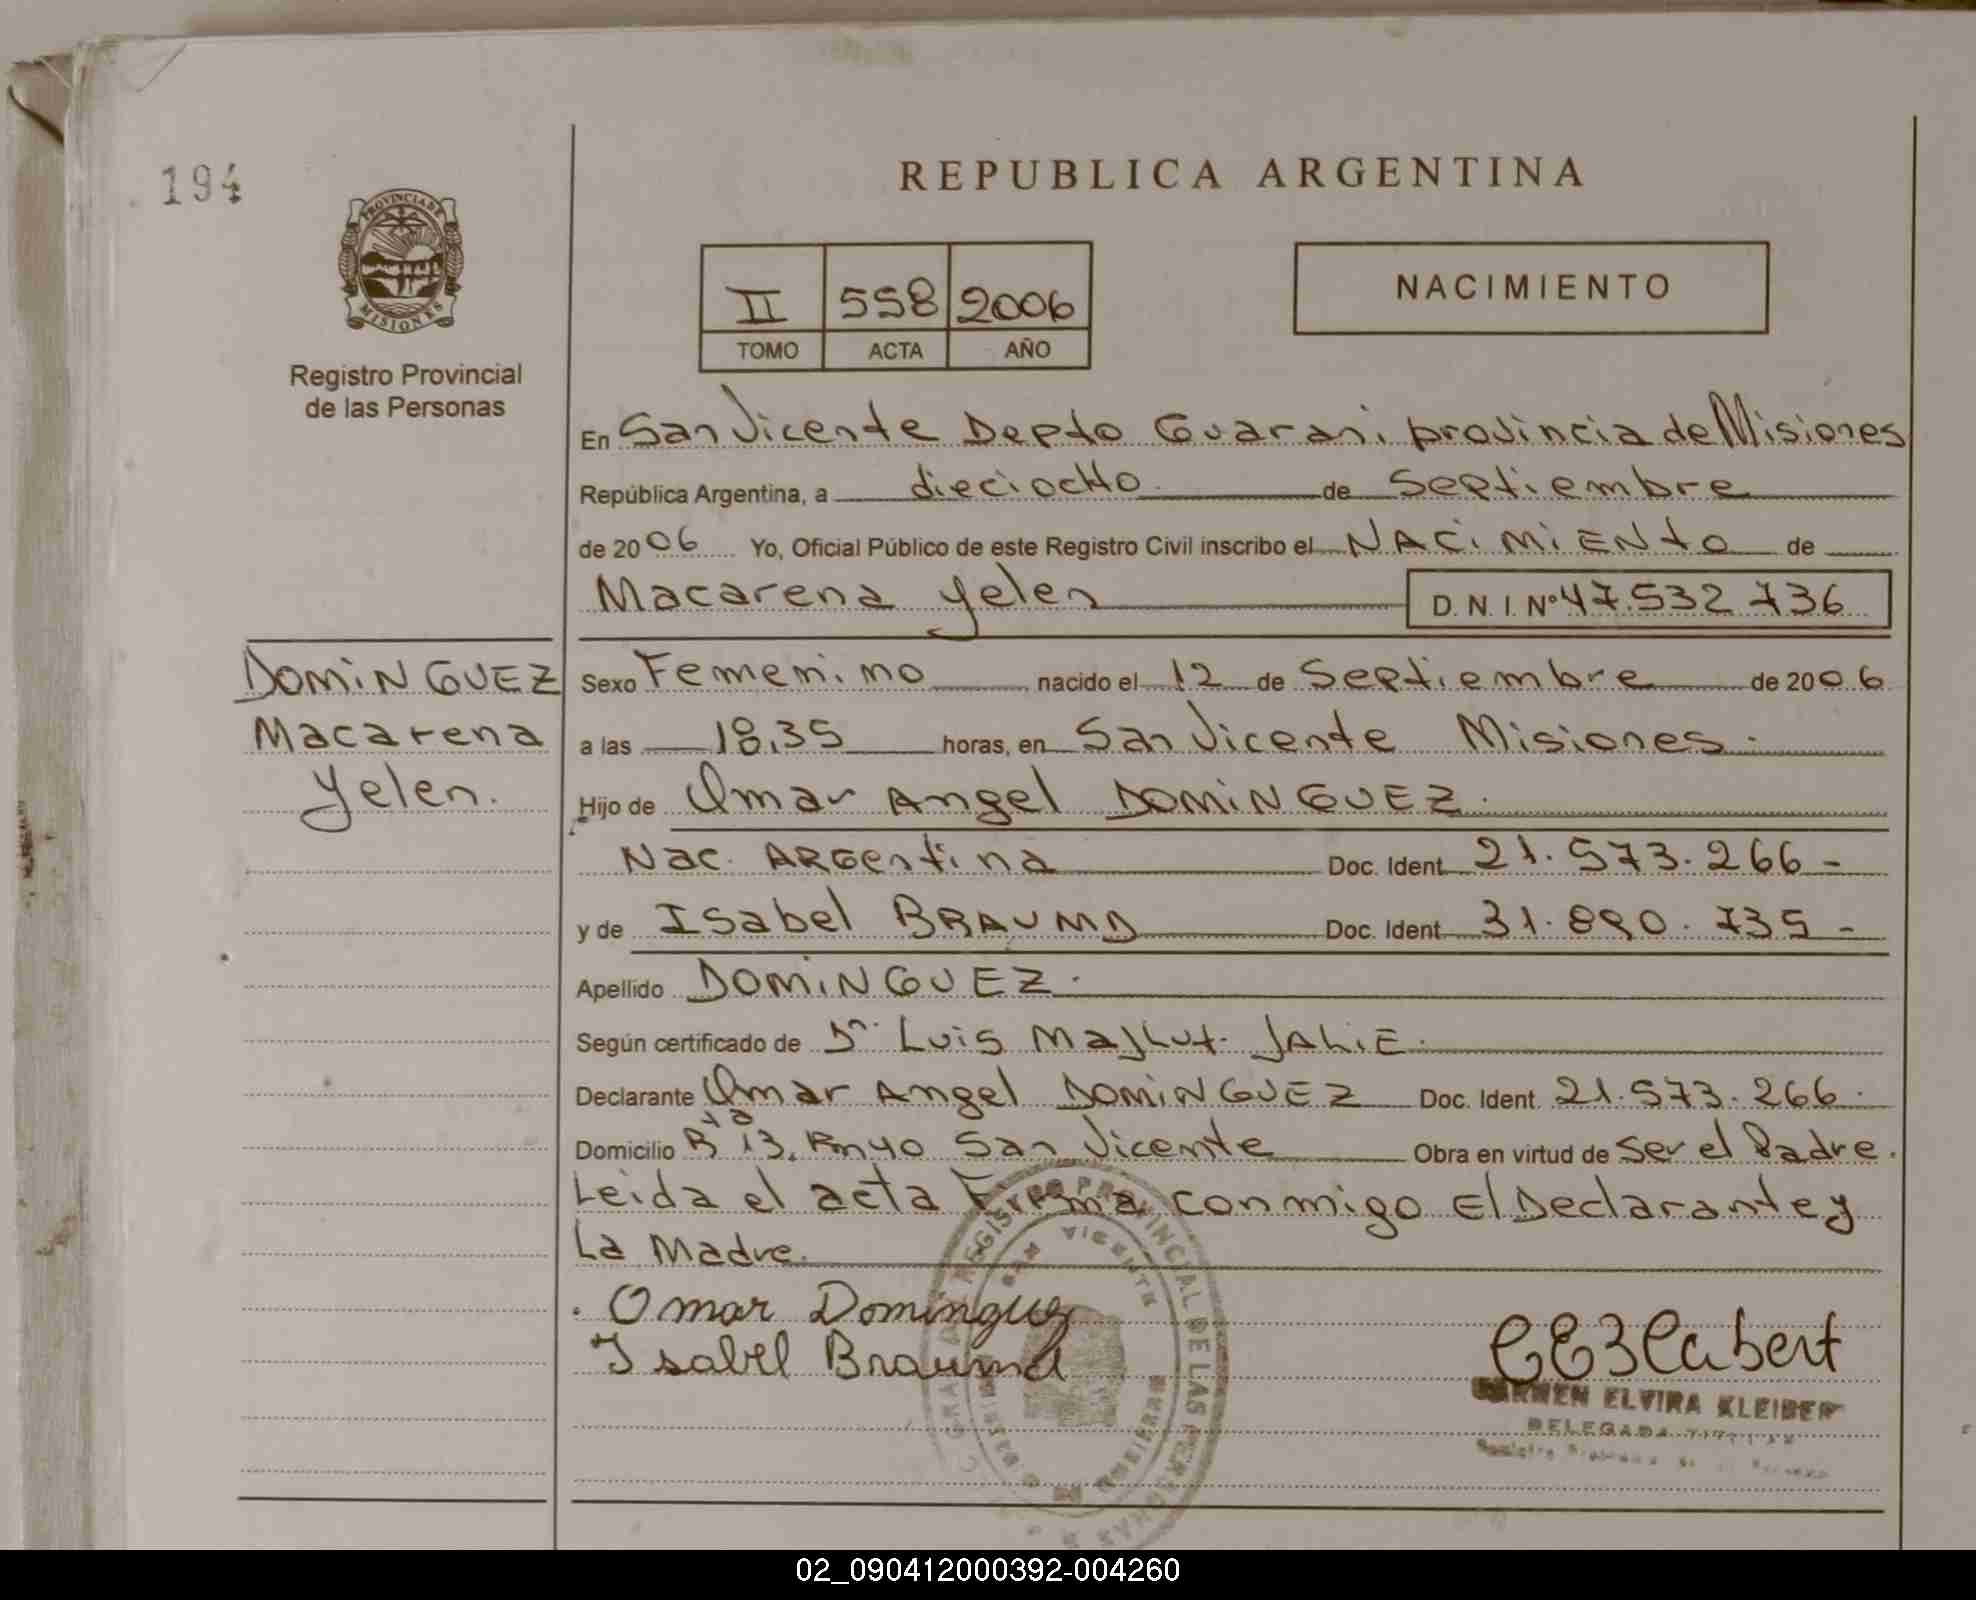 194
PROVINCIA DE
MISIONES
Registro Provincial
de las Personas
REPUBLICA ARGENTINA
II 558 2006
TOMO ACTA AÑO
NACIMIENTO
En San Vicente Depto Guarani provincia de Misiones
República Argentina, a dieciocho de Septiembre
de 2006 Yo, Oficial Público de este Registro Civil inscribo el NACiMiENto de
Macarena Yelen D. N. I. Nº 47.532 736
DOMiNGUEZ
Macarena
Yelen.
Sexo Femenino nacido el 12 de Septiembre de 2006
a las 18,35 horas, en San Vicente Misiones.
Hijo de Omar Angel DOMiNGUEZ.
Nac. ARGentina Doc. Ident. 21.573.266-
y de Isabel BRAUND Doc. Ident. 31.890.735-
Apellido DOMiNGUEZ.
Según certificado de Dr. Luis Majlut. JALiE.
Declarante Omar Angel DOMiNGUEZ Doc. Ident. 21.573.266.
Domicilio San Vicente Obra en virtud de Ser el Padre.
Leida el acta Firma conmigo El Declarante y
La Madre.
Omar Dominguez
Isabel Braund
CARMEN ELVIRA KLEIBER
DELEGADA
REGISTRO PROVINCIAL DE LAS PERSONAS
SAN VICENTE
MISIONES
02_090412000392-004260